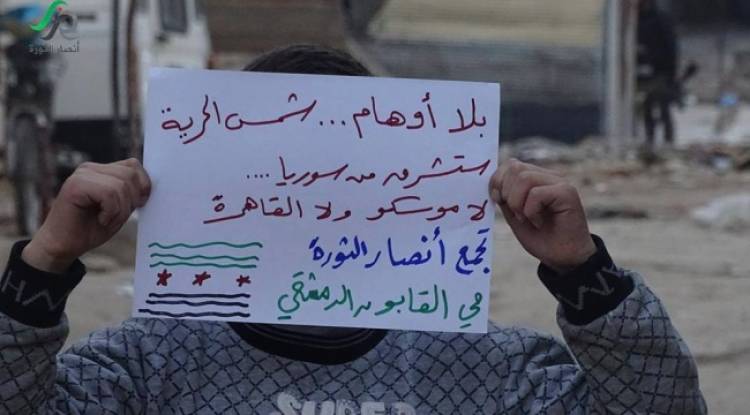 أنصار الثورة
بلا أوهام... شمس الحرية
ستشرق من سوريا ....
لا موسكو ولا القاهرة
تجمع أنصار الثورة
في القابون الدمشقي
SUPER